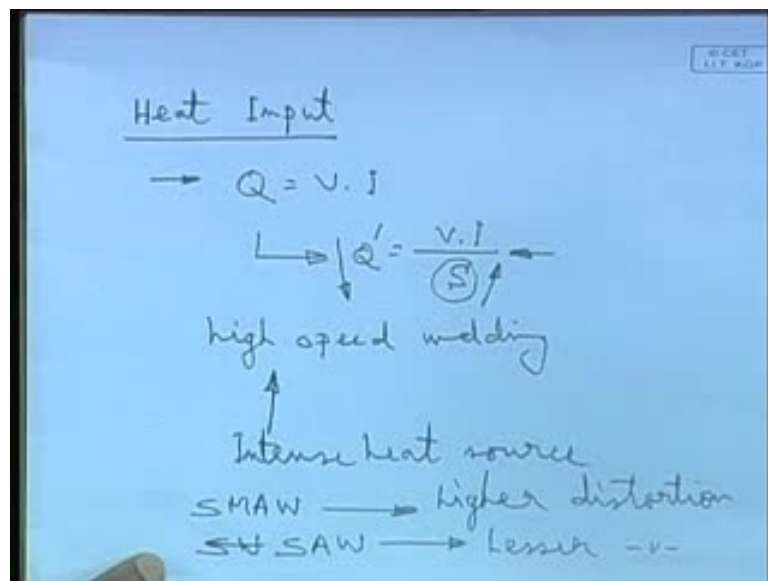 © CET
I.I.T. KGP
Heat Input
→ Q = V.I
↳ ↓Q' = V.I / S ↑ ←
high speed welding
↑
Intense heat source
SMAW → Higher distortion
SAW → Lesser -v-